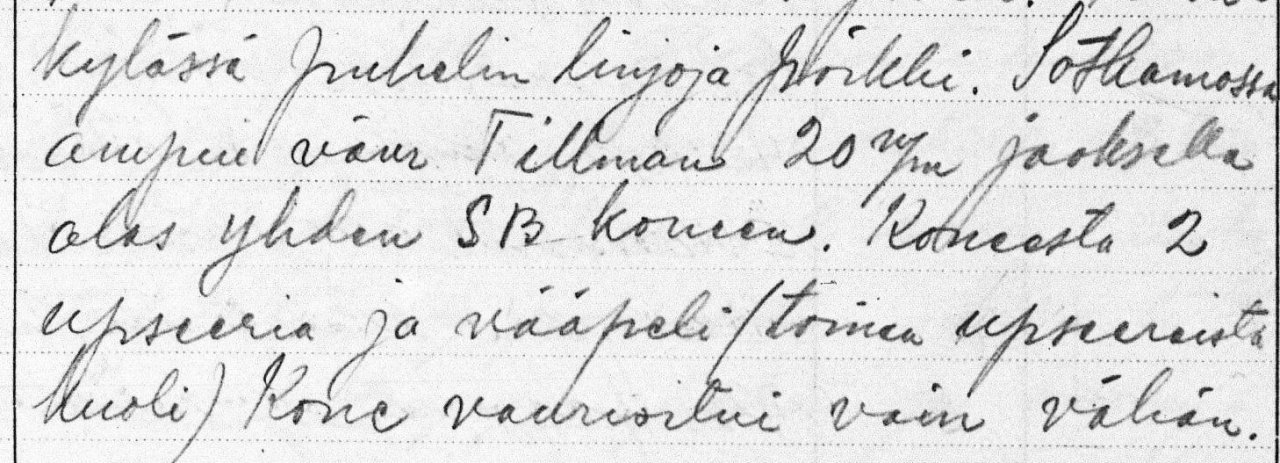 kylässä puhelin linjoja poikki. Sotkamossa
ampui vänr. Tillman 20 m/m jaoksella
alas yhden SB koneen. Koneesta 2
upseeria ja vääpeli (toinen upseereista
kuoli) Kone vaurioitui vain vähän.